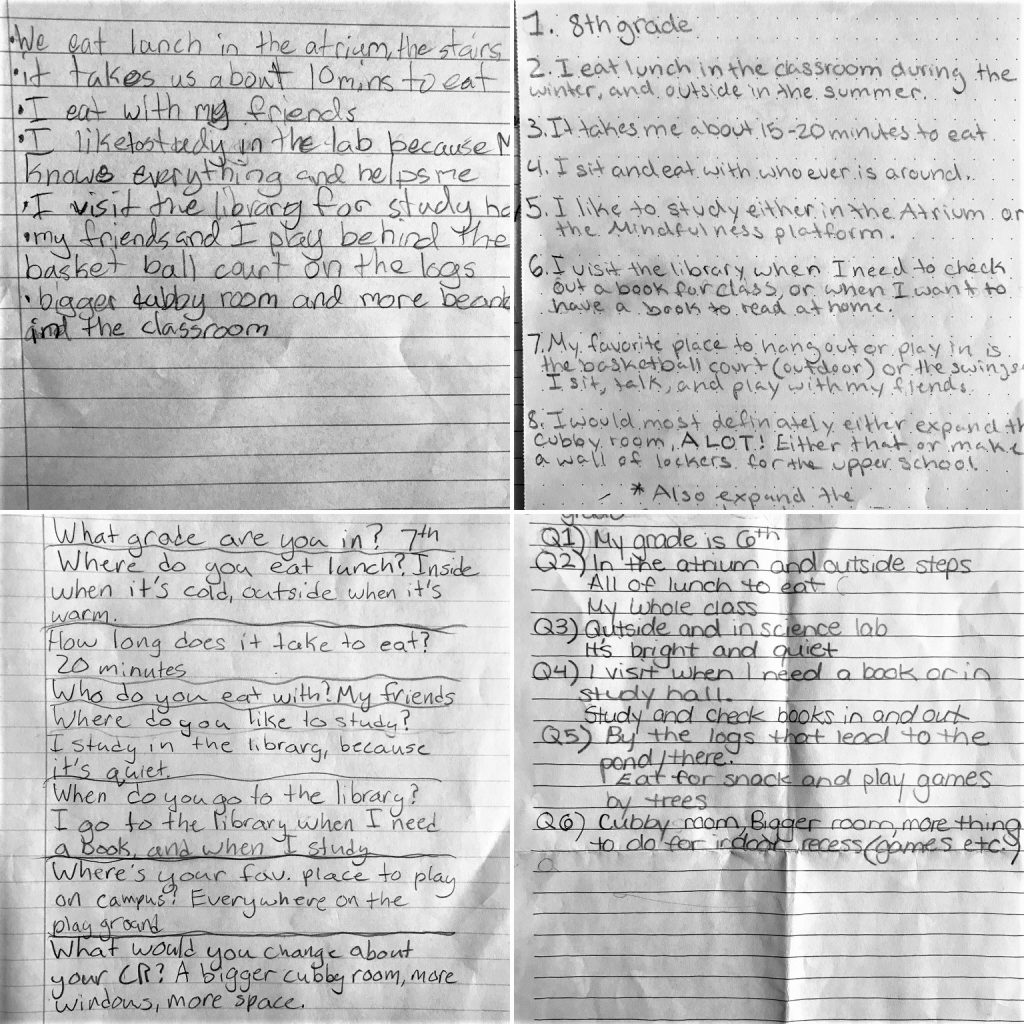 •We eat lunch in the atrium, the stairs
•it takes us about 10mins to eat
•I eat with my friends
•I like to study in the lab because
knows everything and helps me
•I visit the library for study
•my friends and I play behind the
basket ball court on the logs
•bigger cubby room and more
and the classroom
1. 8th grade
2. I eat lunch in the classroom during the
winter, and outside in the summer.
3. It takes me about 15-20 minutes to eat
4. I sit and eat with who ever is around.
5. I like to study either in the Atrium or
the Mindfulness platform.
6. I visit the library when I need to check
out a book for class, or when I want to
have a book to read at home.
7. My favorite place to hang out or play in is
the basketball court (outdoor) or the swings
I sit, talk, and play with my fiends.
8. I would most definately either expand th
cubby room, A LOT! Either that or make
a wall of lockers for the upper school.
* Also expand the
What grade are you in? 7th
Where do you eat lunch? Inside
when it's cold, outside when it's
warm.
How long does it take to eat?
20 minutes
Who do you eat with? My friends
Where do you like to study?
I study in the library, because
it's quiet.
When do you go to the library?
I go to the library when I need
a book, and when I study
Where's your fav. place to play
on campus? Everywhere on the
play ground
What would you change about
your CR? A bigger cubby room, more
windows, more space.
Q1) My grade is 6th
Q2) In the atrium and outside steps
All of lunch to eat
My whole class
Q3) Outside and in science lab
It's bright and quiet
Q4) I visit when I need a book or in
study hall.
Study and check books in and out
Q5) By the logs that lead to the
pond/there.
Eat for snack and play games
by trees
Q6) Cubby room, Bigger room, more thing
to do for indoor recess (games etc.)